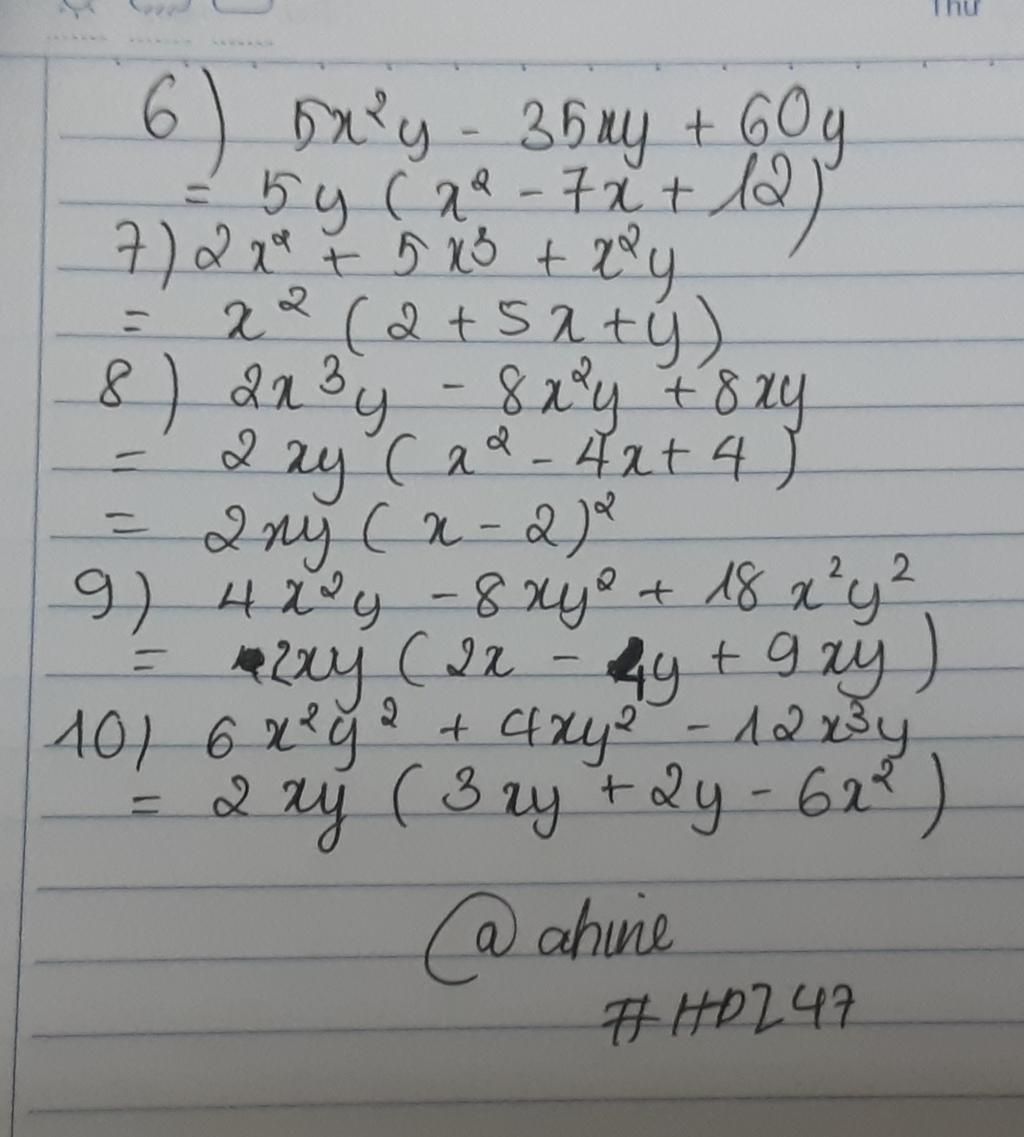 Thu
6) 5x²y - 35xy + 60y
= 5y (x² - 7x + 12)
7) 2x² + 5x³ + x²y
= x² (2 + 5x + y)
8) 2x³y - 8x²y + 8xy
= 2xy (x² - 4x + 4)
= 2xy (x - 2)²
9) 4x²y - 8xy² + 18x²y²
= 2xy (2x - 4y + 9xy)
10) 6x²y² + 4xy² - 12x³y
= 2xy (3xy + 2y - 6x²)
@ahine
#HDZ47